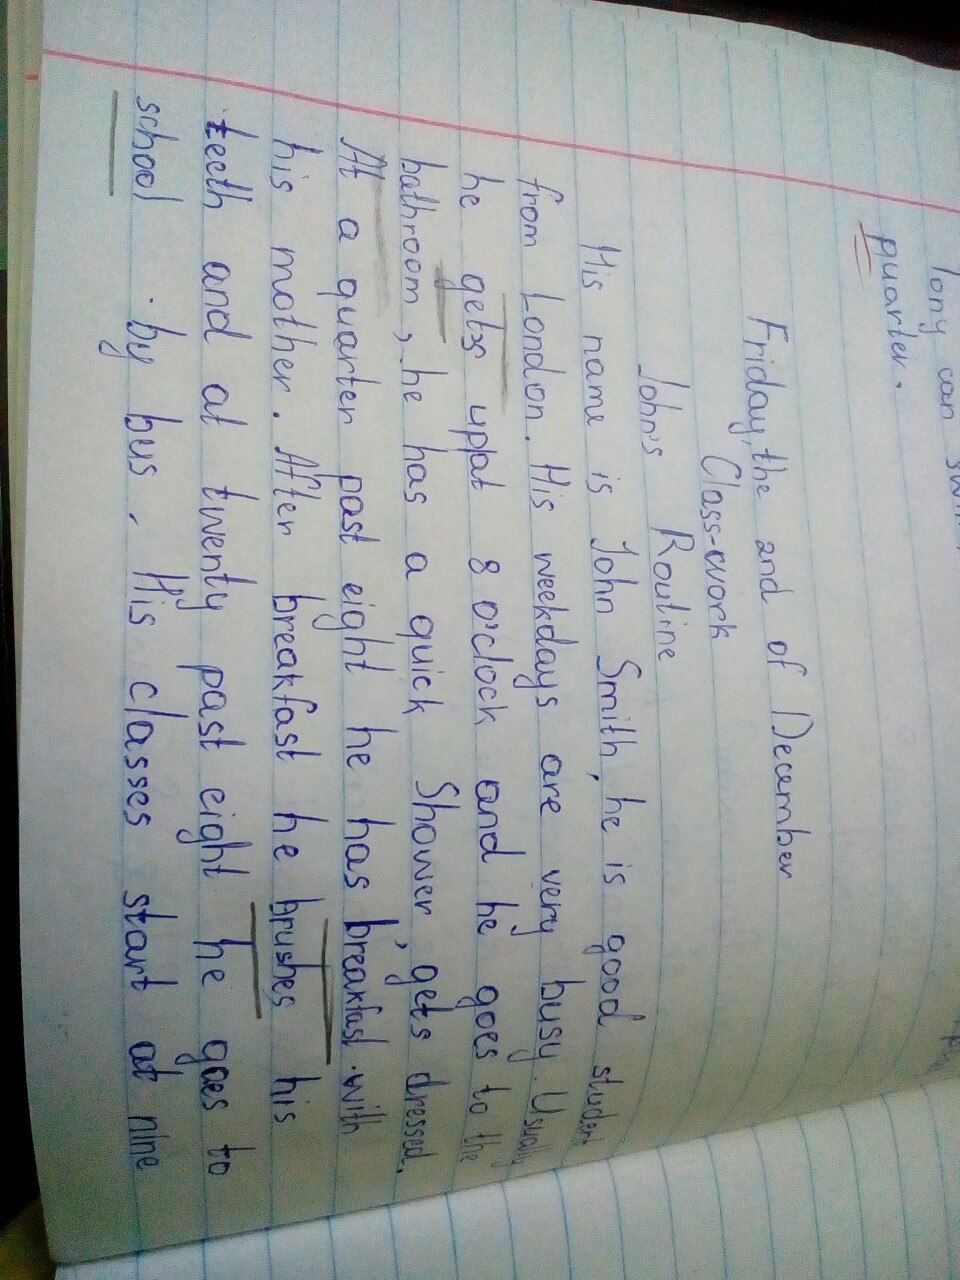 Tony can swim
quarter.
Friday, the 2nd of December
Class-work
John's Routine
His name is John Smith, he is good student
from London. His weekdays are very busy. Usually
he gets up at 8 o'clock and he goes to the
bathroom, he has a quick Shower, gets dressed.
At a quarter past eight he has breakfast with
his mother. After breakfast he brushes his
teeth and at twenty past eight he goes to
school by bus. His classes start at nine